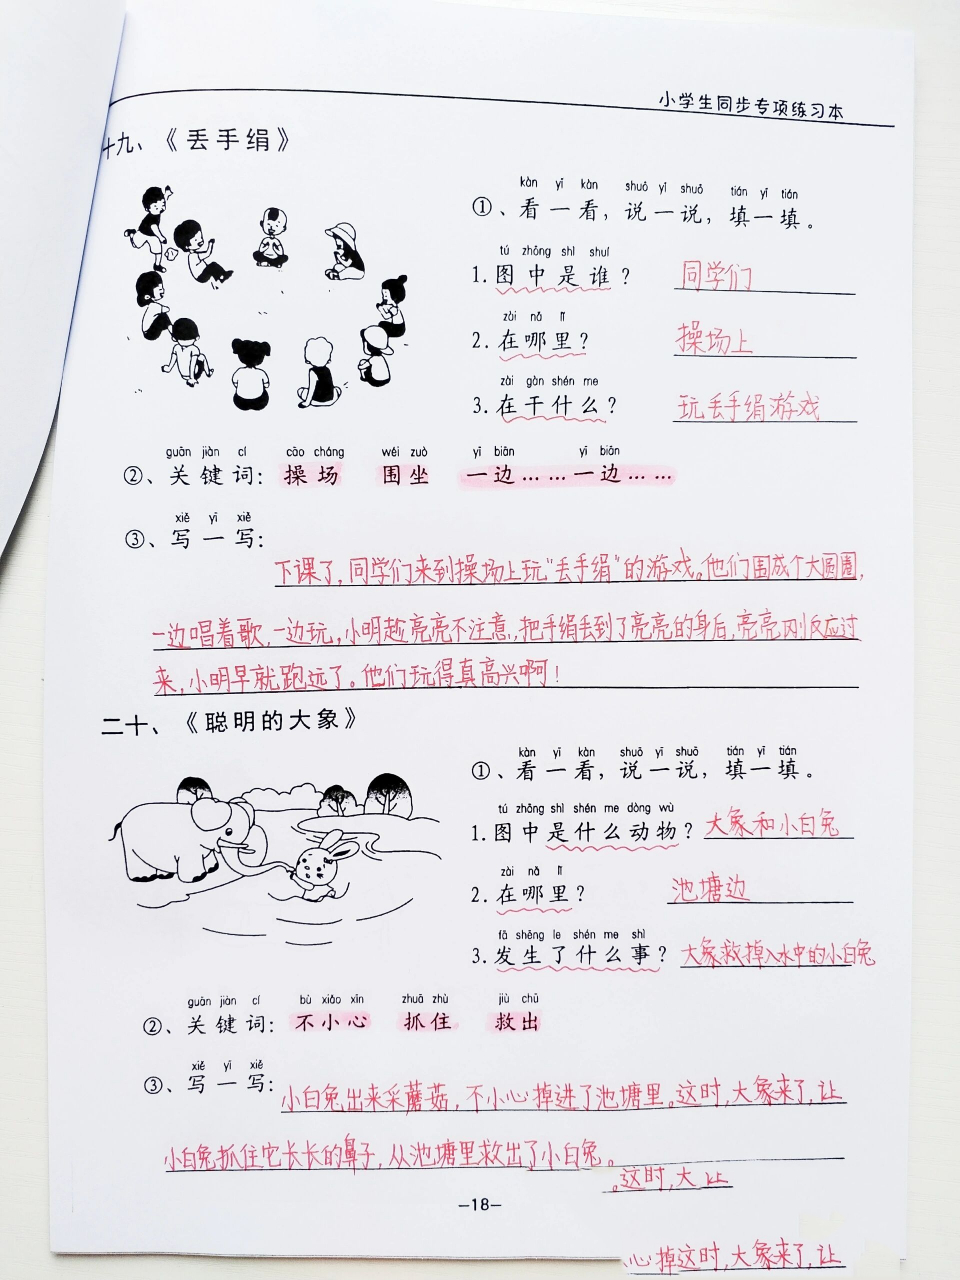 小学生同步专项练习本
十九、《丢手绢》
kàn yī kàn shuō yī shuō tián yī tián
①、看一看，说一说，填一填。
tú zhōng shì shuí
1.图中是谁？ 同学们
zài nǎ lǐ
2.在哪里？ 操场上
zài gàn shén me
3.在干什么？ 玩丢手绢游戏
guān jiàn cí cāo chǎng wéi zuò yī biān yī biān
②、关键词：操场 围坐 一边……一边……
xiě yī xiě
③、写一写：
下课了，同学们来到操场上玩“丢手绢”的游戏。他们围成个大圆圈，
一边唱着歌，一边玩，小明趁亮亮不注意，把手绢丢到了亮亮的身后，亮亮刚反应过
来，小明早就跑远了。他们玩得真高兴啊！
二十、《聪明的大象》
kàn yī kàn shuō yī shuō tián yī tián
①、看一看，说一说，填一填。
tú zhōng shì shén me dòng wù
1.图中是什么动物？ 大象和小白兔
zài nǎ lǐ
2.在哪里？ 池塘边
fā shēng le shén me shì
3.发生了什么事？ 大象救掉入水中的小白兔
guān jiàn cí bù xiǎo xīn zhuā zhù jiù chū
②、关键词：不小心 抓住 救出
xiě yī xiě
③、写一写：小白兔出来采蘑菇，不小心掉进了池塘里。这时，大象来了，让
小白兔抓住它长长的鼻子，从池塘里救出了小白兔。
。这时，大 让
—18—
心掉这时，大象来了，让